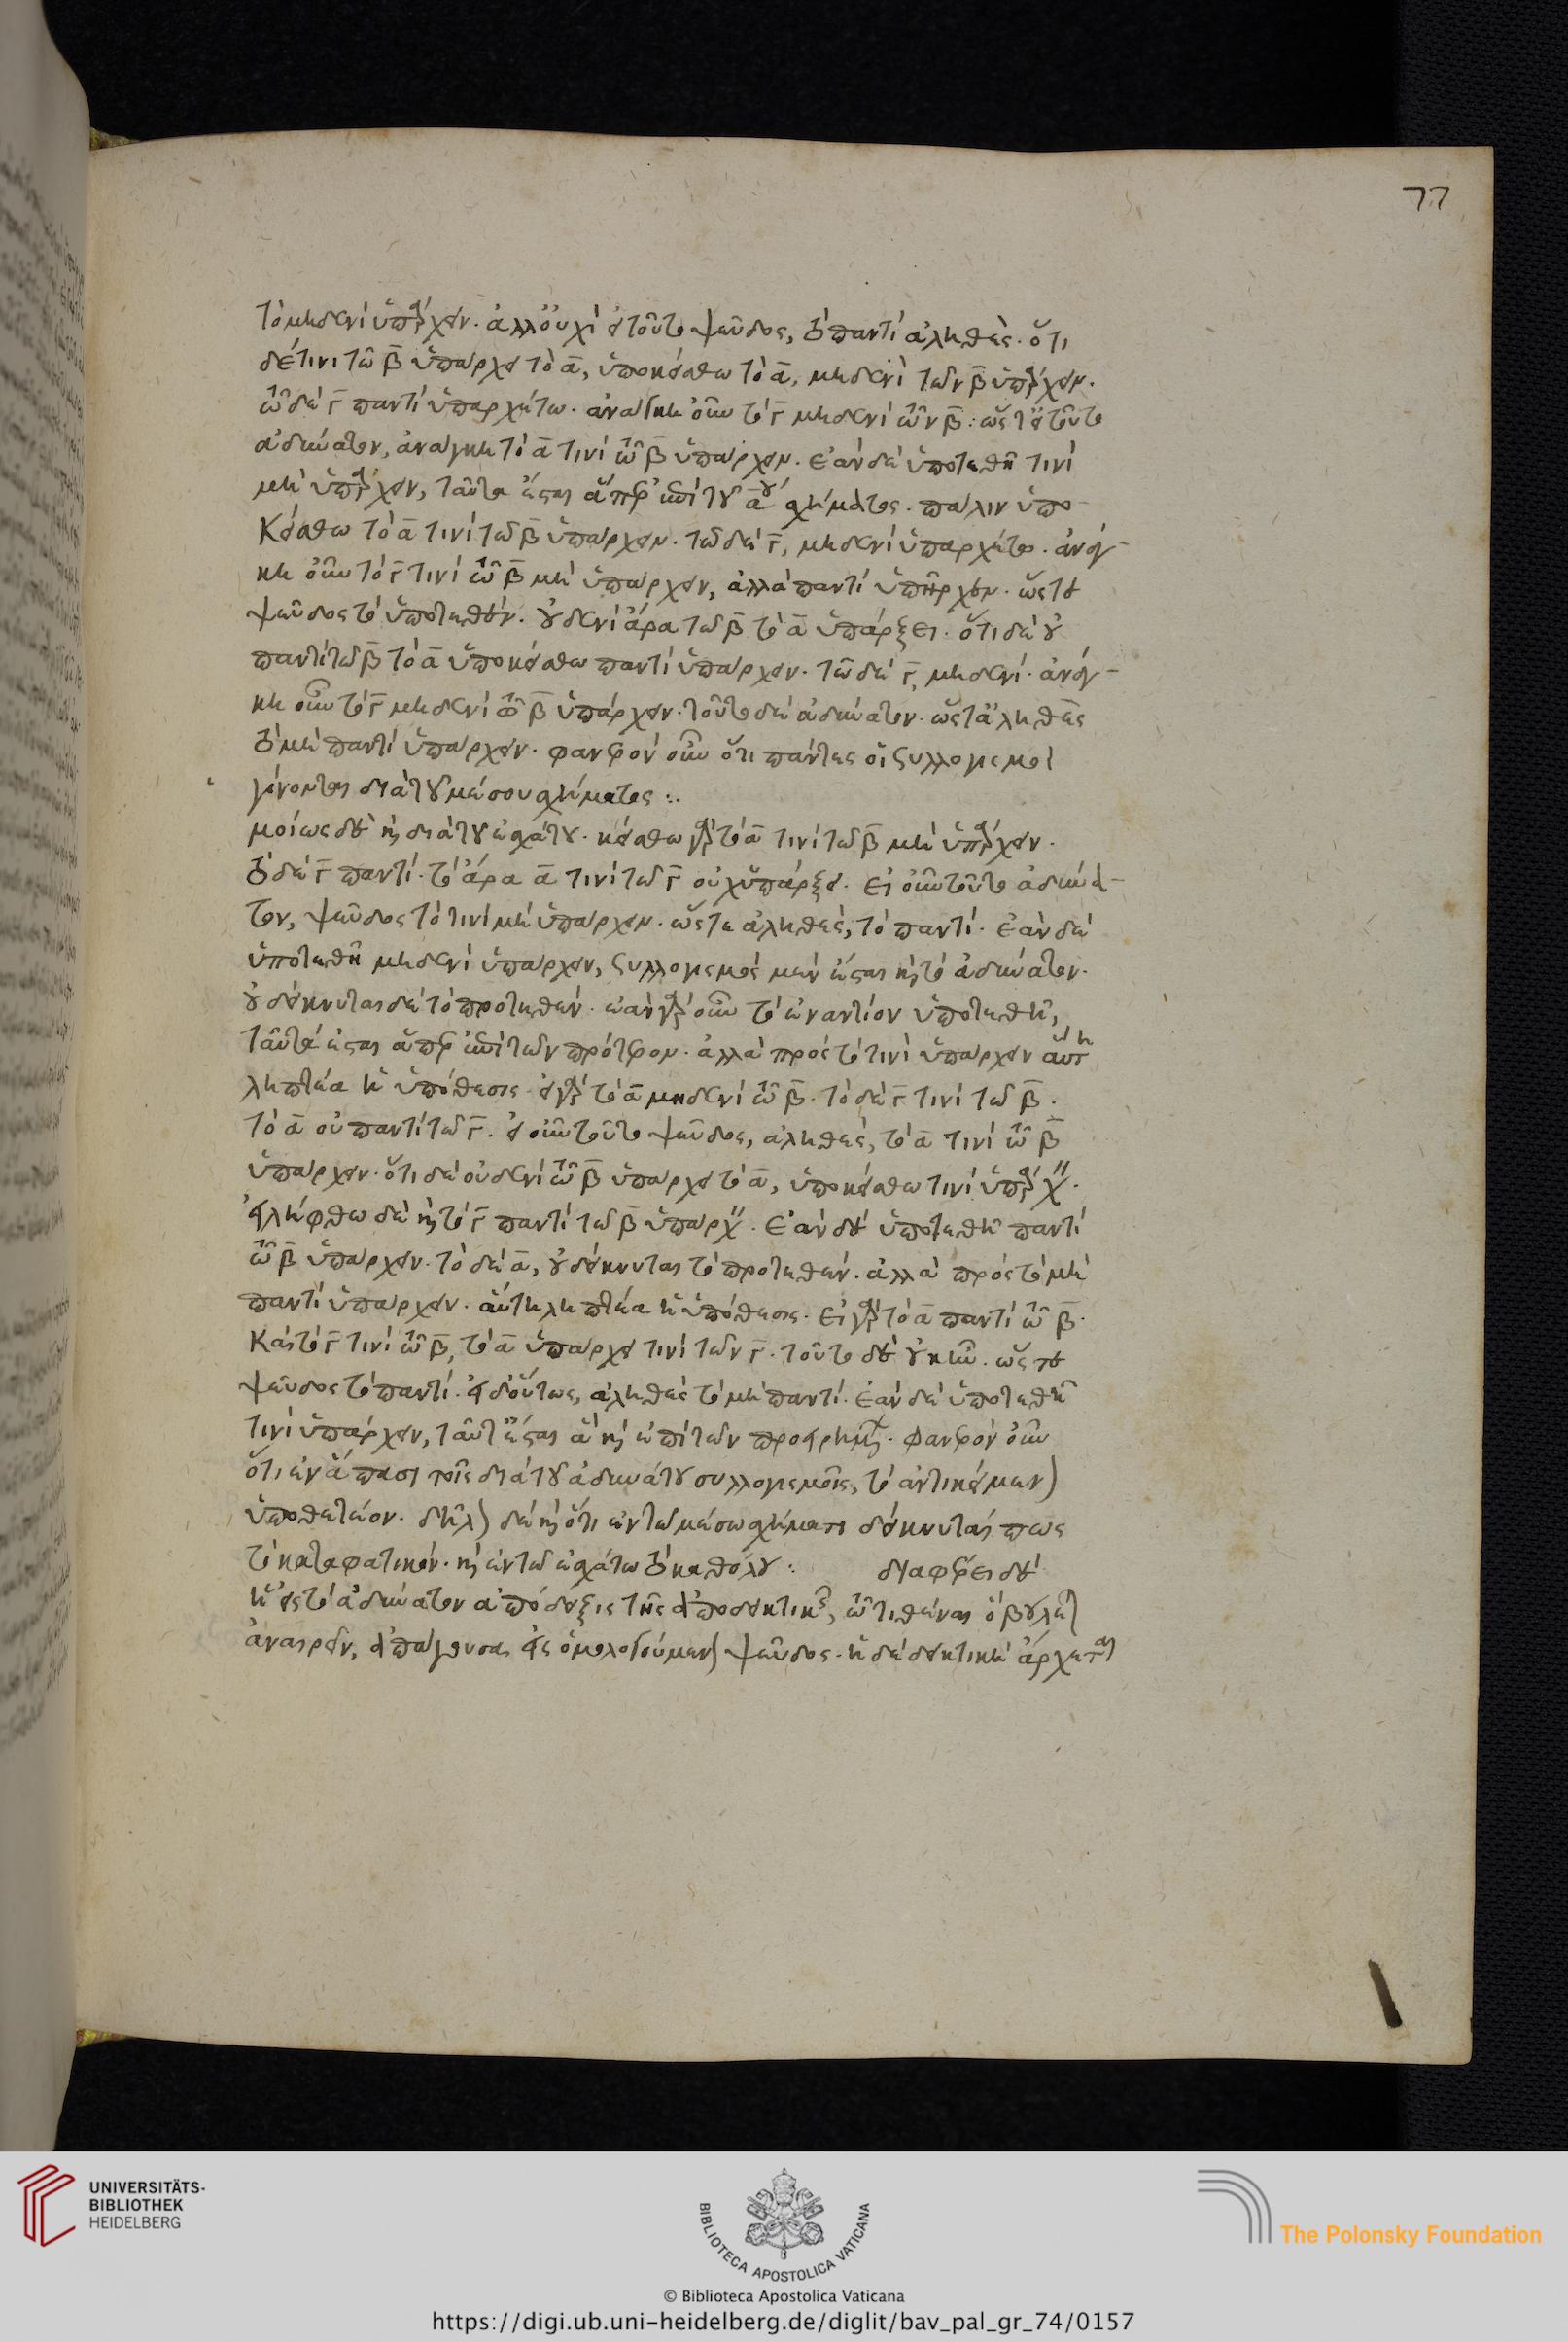 τὸ μηδενὶ ὑπάρχειν. ἀλλ' οὐχὶ εἰ τοῦτο ψεῦδος, τὸ παντὶ ἀληθές. ὅτι
δέ τινι τῶ β̄ ὑπάρχει τὸ ᾱ, ὑποκείσθω τὸ ᾱ, μηδενὶ τῶν β̄ ὑπάρχειν.
τῶ δὲ γ̄ παντὶ ὑπαρχέτω. ἀνάγκη οὖν τὸ γ̄ μηδενὶ τῶν β̄: ὥστ' εἰ τοῦτο
ἀδύνατον, ἀνάγκη τὸ ᾱ τινὶ τῶ β̄ ὑπάρχειν. ἐὰν δὲ ὑποτεθῆ τινὶ
μὴ ὑπάρχειν, ταῦτα ἔσται ἅπερ ἐπὶ τοῦ ᾱου σχήματος. πάλιν ὑπο-
κείσθω τὸ ᾱ τινὶ τῶ β̄ ὑπάρχειν. τῶ δὲ γ̄, μηδενὶ ὑπαρχέτω. ἀνάγ-
κη οὖν τὸ γ̄ τινὶ τῶ β̄ μὴ ὑπάρχειν, ἀλλὰ παντὶ ὑπῆρχεν. ὥστε
ψεῦδος τὸ ὑποτεθέν. οὐδενὶ ἄρα τῶ β̄ τὸ ᾱ ὑπάρξει. ὅτι δὲ οὐ
παντὶ τῶ β̄ τὸ ᾱ ὑποκείσθω παντὶ ὑπάρχειν. τῶ δὲ γ̄, μηδενί. ἀνάγ-
κη οὖν τὸ γ̄ μηδενὶ τῶ β̄ ὑπάρχειν. τοῦτο δὲ ἀδύνατον. ὥστ' ἀληθὲς
τὸ μὴ παντὶ ὑπάρχειν. φανερὸν οὖν ὅτι πάντες οἱ συλλογισμοὶ
γίνονται διὰ τοῦ μέσου σχήματος :.
μοίως δὲ καὶ διὰ τοῦ ἐσχάτου. κείσθω γὰρ τὸ ᾱ τινὶ τῶ β̄ μὴ ὑπάρχειν.
τὸ δὲ γ̄ παντί. τὸ ἄρα ᾱ τινὶ τῶ γ̄ οὐχ ὑπάρξει. εἰ οὖν τοῦτο ἀδύνα-
τον, ψεῦδος τὸ τινὶ μὴ ὑπάρχειν. ὥστε ἀληθές, τὸ παντί. ἐὰν δὲ
ὑποτεθῆ μηδενὶ ὑπάρχειν, συλλογισμὸς μὲν ἔσται καὶ τὸ ἀδύνατον.
οὐ δείκνυται δὲ τὸ προτεθέν. ἐὰν γὰρ οὖν τὸ ἐναντίον ὑποτεθῆ,
ταῦτα ἔσται ἅπερ ἐπὶ τῶν πρότερον. ἀλλὰ πρὸς τὸ τινὶ ὑπάρχειν αὕτη
ληπτέα ἡ ὑπόθεσις. εἰ γὰρ τὸ ᾱ μηδενὶ τῶ β̄. τὸ δὲ γ̄ τινὶ τῶ β̄.
τὸ ᾱ οὐ παντὶ τῶ γ̄. εἰ οὖν τοῦτο ψεῦδος, ἀληθές, τὸ ᾱ τινὶ τῶ β̄
ὑπάρχειν. ὅτι δὲ οὐδενὶ τῶ β̄ ὑπάρχει τὸ ᾱ, ὑποκείσθω τινὶ ὑπάρχειν.
εἰλήφθω δὲ καὶ τὸ γ̄ παντὶ τῶ β̄ ὑπάρχειν. ἐὰν δὲ ὑποτεθῆ παντὶ
τῶ β̄ ὑπάρχειν. τὸ δὲ ᾱ, οὐ δείκνυται τὸ προτεθέν. ἀλλὰ πρὸς τὸ μὴ
παντὶ ὑπάρχειν. αὕτη ληπτέα ἡ ὑπόθεσις. εἰ γὰρ τὸ ᾱ παντὶ τῶ β̄.
καὶ τὸ γ̄ τινὶ τῶ β̄, τὸ ᾱ ὑπάρχει τινὶ τῶν γ̄. τοῦτο δὲ οὐκ ἦν. ὥστε
ψεῦδος τὸ παντί. εἰ δ' οὕτως, ἀληθὲς τὸ μὴ παντί. ἐὰν δὲ ὑποτεθῆ
τινὶ ὑπάρχειν, ταῦτ' ἔσται ἃ καὶ ἐπὶ τῶν προειρημένων. φανερὸν οὖν
ὅτι ἐν ἅπασι τοῖς διὰ τοῦ ἀδυνάτου συλλογισμοῖς, τὸ ἀντικείμενον
ὑποθετέον. δῆλον δὲ καὶ ὅτι ἐν τῶ μέσω σχήματι δείκνυταί πως
τὸ καταφατικόν. καὶ ἐν τῶ ἐσχάτω τὸ καθόλου : διαφέρει δὲ
ἡ εἰς τὸ ἀδύνατον ἀπόδειξις τῆς ἀποδεικτικῆς, τῶ τιθέναι ὃ βούλεται
ἀναιρεῖν, ἀπάγουσα εἰς ὁμολογούμενον ψεῦδος. ἡ δὲ δεικτικὴ ἄρχεται
77
UNIVERSITÄTS-
BIBLIOTHEK
HEIDELBERG
BIBLIOTECA APOSTOLICA VATICANA
The Polonsky Foundation
© Biblioteca Apostolica Vaticana
https://digi.ub.uni-heidelberg.de/diglit/bav_pal_gr_74/0157